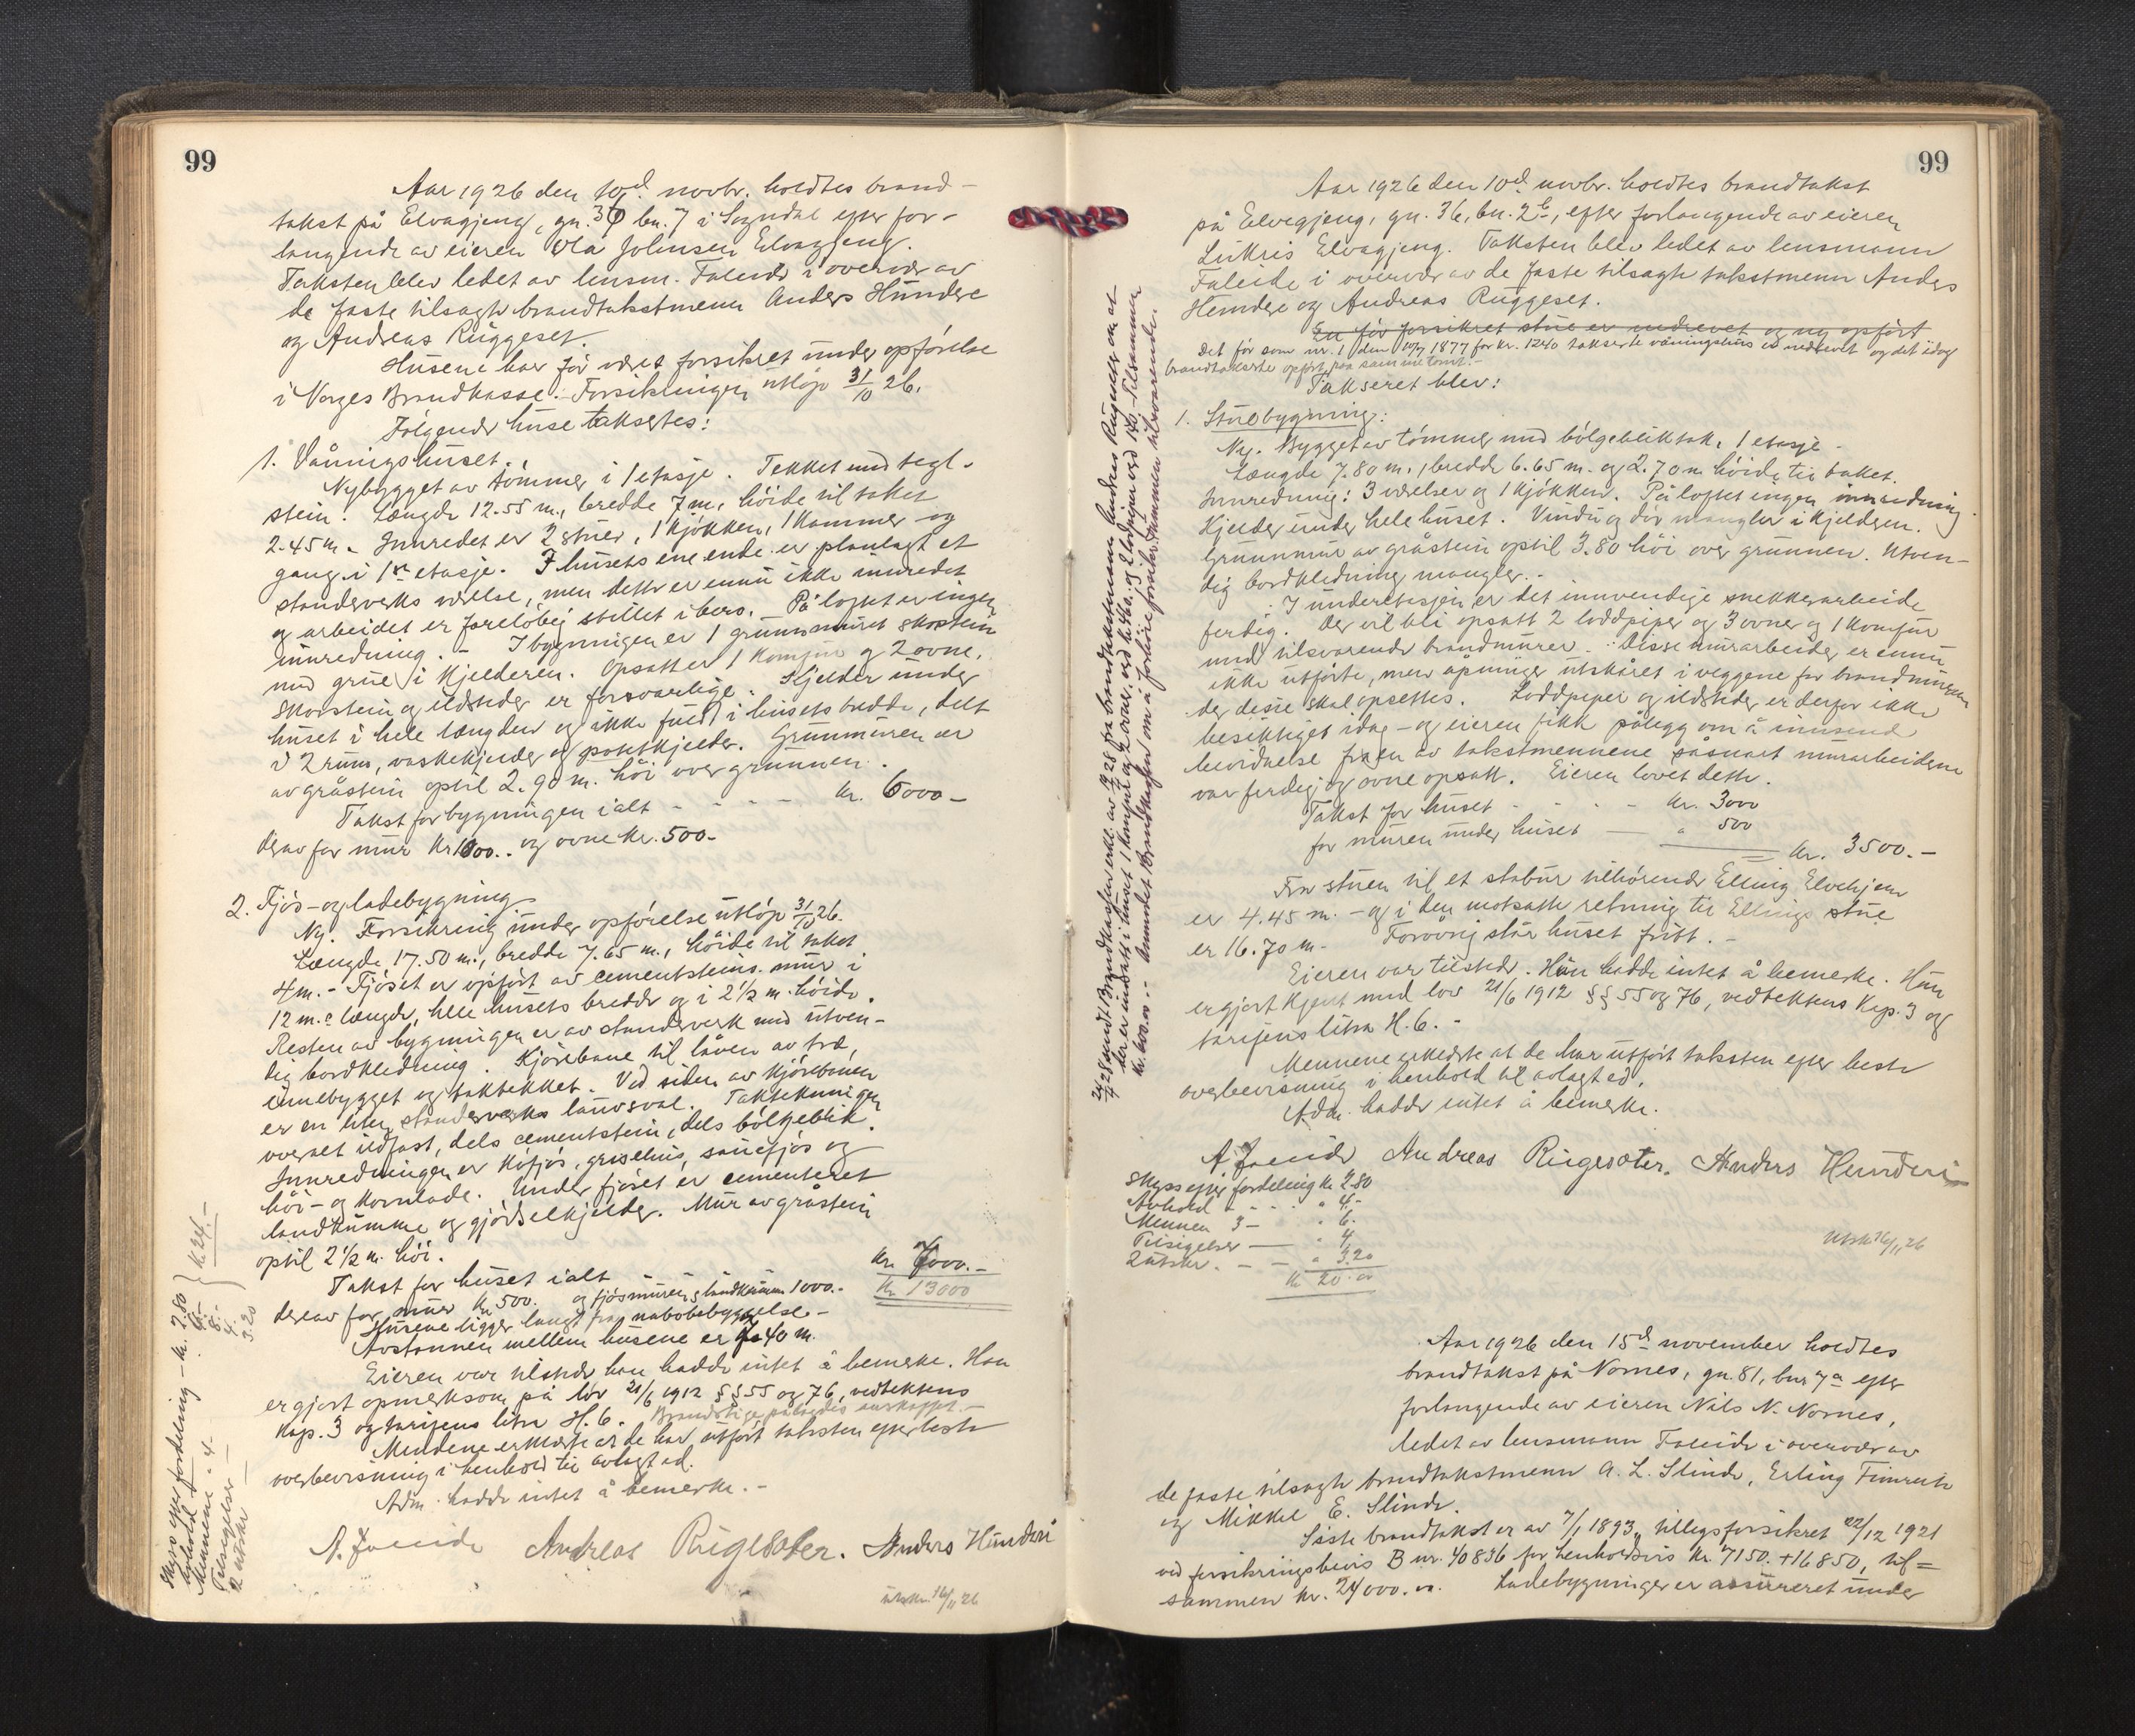 99
Aar 1926 den 10d. novbr. holdtes brand-
takst på Elvagjeng, gn. 36 bn. 7 i Sogndal efter for-
langende av eieren Ola Johnsen Elvagjeng.
Taksten blev ledet av lensm. Faleide i overvær av
de faste tilsagte brandtakstmenn Anders Hundere
og Andreas Ruggeset.
Husene har før været forsikret under opførelse
i Norges Brandkasse. Forsikringen utløp 31/10 26.
Følgende huse taksertes:
1. Våningshuset.
Nybygget av tømmer i 1 etasje. Tekket med tegl-
stein. Længde 12.55 m., bredde 7 m., høide til taket
2.45 m. Innredet er 2 stuer, 1 kjøkken, 1 kammer og
gang i 1ste etasje. I husets ene ende er planlagt et
standerverks værelse, men dette er ennu ikke innredet
og arbeidet er foreløbig stillet i bero. - På loftet er ingen
innredning. - I bygningen er 1 grunnmuret skorstein
med grue i kjelderen. Opsatt er 1 komfur og 2 ovne.
Skorstein og ildsteder er forsvarlige. Kjelder under
huset i hele længden og ikke fuld i husets bredde, delt
i 2 rum, vaskekjelder og potetkjelder. Grunnmuren er
av gråstein optil 2.90 m. høi over grunnen.
Takst for bygningen ialt - - - - kr. 6000-
derav for mur kr 1000.. og ovne kr. 500-
2. Fjøs- og ladebygning
Ny. Forsikring under opførelse utløp 31/10 26.
Længde 17.50 m., bredde 7.65 m., høide til taket
4 m. - Fjøset er opført av cementsteins mur i
12 m.s længde, hele husets bredde og i 2½ m. høide.
Resten av bygningen er av standerverk med utven-
dig bordkledning. Kjørebane til låven av træ,
innebygget og taktekket. Ved siden av kjørebanen
er en liten standerverks lauvsval. Taktekningen
overalt ildfast, dels cementstein, dels bølgeblik.
Innredningen er kufjøs, grisehus, sauefjøs og
høi- og kornlade. Under fjøset er cementeret
landkumme og gjødselkjelder. Mur av gråstein
optil 2½ m. høi.
Takst for huset ialt - - - kr. 7000.-
derav for mur kr 500. og fjøsmuren og landkummen 1000.- kr 13000
Husene ligger langt fra nabobebyggelse.-
Avstannen mellem husene er 40 m.
Eieren var tilstede han hadde intet å bemerke. Han
er gjort opmerksom på lov 21/6 1912 §§ 55 og 76, vedtektens
kap. 3 og tarifens litra H. 6. Brandstige pålagdes anskaffet.-
Mendene erklærte at de har utført taksten efter beste
overbevisning i henhold til avlagt ed.
Adm. hadde intet å bemerke. -
A. Faleide Andreas Rugesæter. Anders Hundere
utskr. 16/11 26
Skyss efter fordeling - kr. 2.80
Avhold 6.-
Mennene 8.-
Tilsigelser - 4.-
2 utskr 3.20
kr. 24.-
99
Aar 1926 den 10d. novbr. holdtes brandtakst
på Elvegjeng, gn. 36, bn. 2b, efter forlangende av eieren
Lukris Elvagjeng. Taksten blev ledet av lensmann
Faleide i overvær av de faste tilsagte takstmenn Anders
Hundere og Andreas Ruggeset.
En før forsikret stue er nedrevet og ny opført
Det før som nr. 1 den 10/7 1877 for kr. 1240 takserte våningshus er nedrevet og det idag
brandtakserte opført paa samme tomt.-
Takseret blev:
1. Stuebygning:
Ny. Bygget av tømmer med bølgebliktak, 1 etasje -
Længde 7.80 m., bredde 6.65 m. og 2.70 m høide til taket.
Innredning: 3 værelser og 1 kjøkken. På loftet ingen innredning.
Kjelder under hele huset. Vindu og dør mangler i kjelderen.
Grunnmur av gråstein optil 3.80 høi over grunnen. Utven-
dig bordkledning mangler. -
I underetasjen er det innvendige snekkerarbeide
ferdig. Der vil bli opsatt 2 loddpiper og 3 ovner og 1 komfur
med tilsvarende brandmurer. Disse murarbeider er ennu
ikke utførte, men åpninger utskåret i veggene for brandmurene
der disse skal opsettes. Loddpiper og ildsteder er derfor ikke
besiktiget idag - og eieren fikk pålegg om å innsende
bevidnelse fra en av takstmennene såsnart murarbeiderne
var ferdig og ovne opsatt. Eieren lovet dette.
Takst for huset - - - - kr. 3000
for muren under huset — " 500
kr. 3500.-
Fra stuen til et stabur tilhørende Elling Elvekjem
er 4.45 m. - og i den motsatte retning til Ellings stue
er 16.70 m. Forøvrig står huset fritt. -
Eieren var tilstede. Han hadde intet å bemerke. Han
er gjort kjent med lov 21/6 1912 §§ 55 og 76, vedtektens Kap. 3 og
tarifens litra H. 6. -
Mennene erklærte at de har utført taksten efter beste
overbevisning i henhold til avlagt ed.
Adm. hadde intet å bemerke.
A. Faleide Andreas Rugesæter. Anders Hundere
Skyss efter fordeling kr 2.80
Avhold - - - " 4.-
Mennene 3- " 6.
Tilsigelser — " 4
2 utskr. - - " 3.20
kr 20.00
Utskr 16/11 26
24/9 28 sendt Brandkassen erkl. av 19/9 28 fra brandtakstmann Andreas Rugeset om at
der er innsatt i huset 1 komfur og 2 ovner, verd kr. 460 og 2 lodpiper verd 140.- Tilsammen
kr. 600.00. - Anmodet Brandkassen om å forhøie forsikr. summen tilsvarende.
Aar 1926 den 15d november holdtes
brandtakst på Nornes, gn. 81, bnr 7a efter
forlangende av eieren Nils N. Nornes,
ledet av lensmann Faleide i overvær av
de faste tilsagte brandtakstmenn A. L. Slinde, Erling Fimreite
og Mikkel E. Slinde.
Siste brandtakst er av 7/1 1893, tillegsforsikret 22/12 1921
ved forsikringsbevis B nr. 40836 for henholdsvis kr. 7150. + 16850, til=
sammen kr. 24000.00. Ladebygningen er assureret under